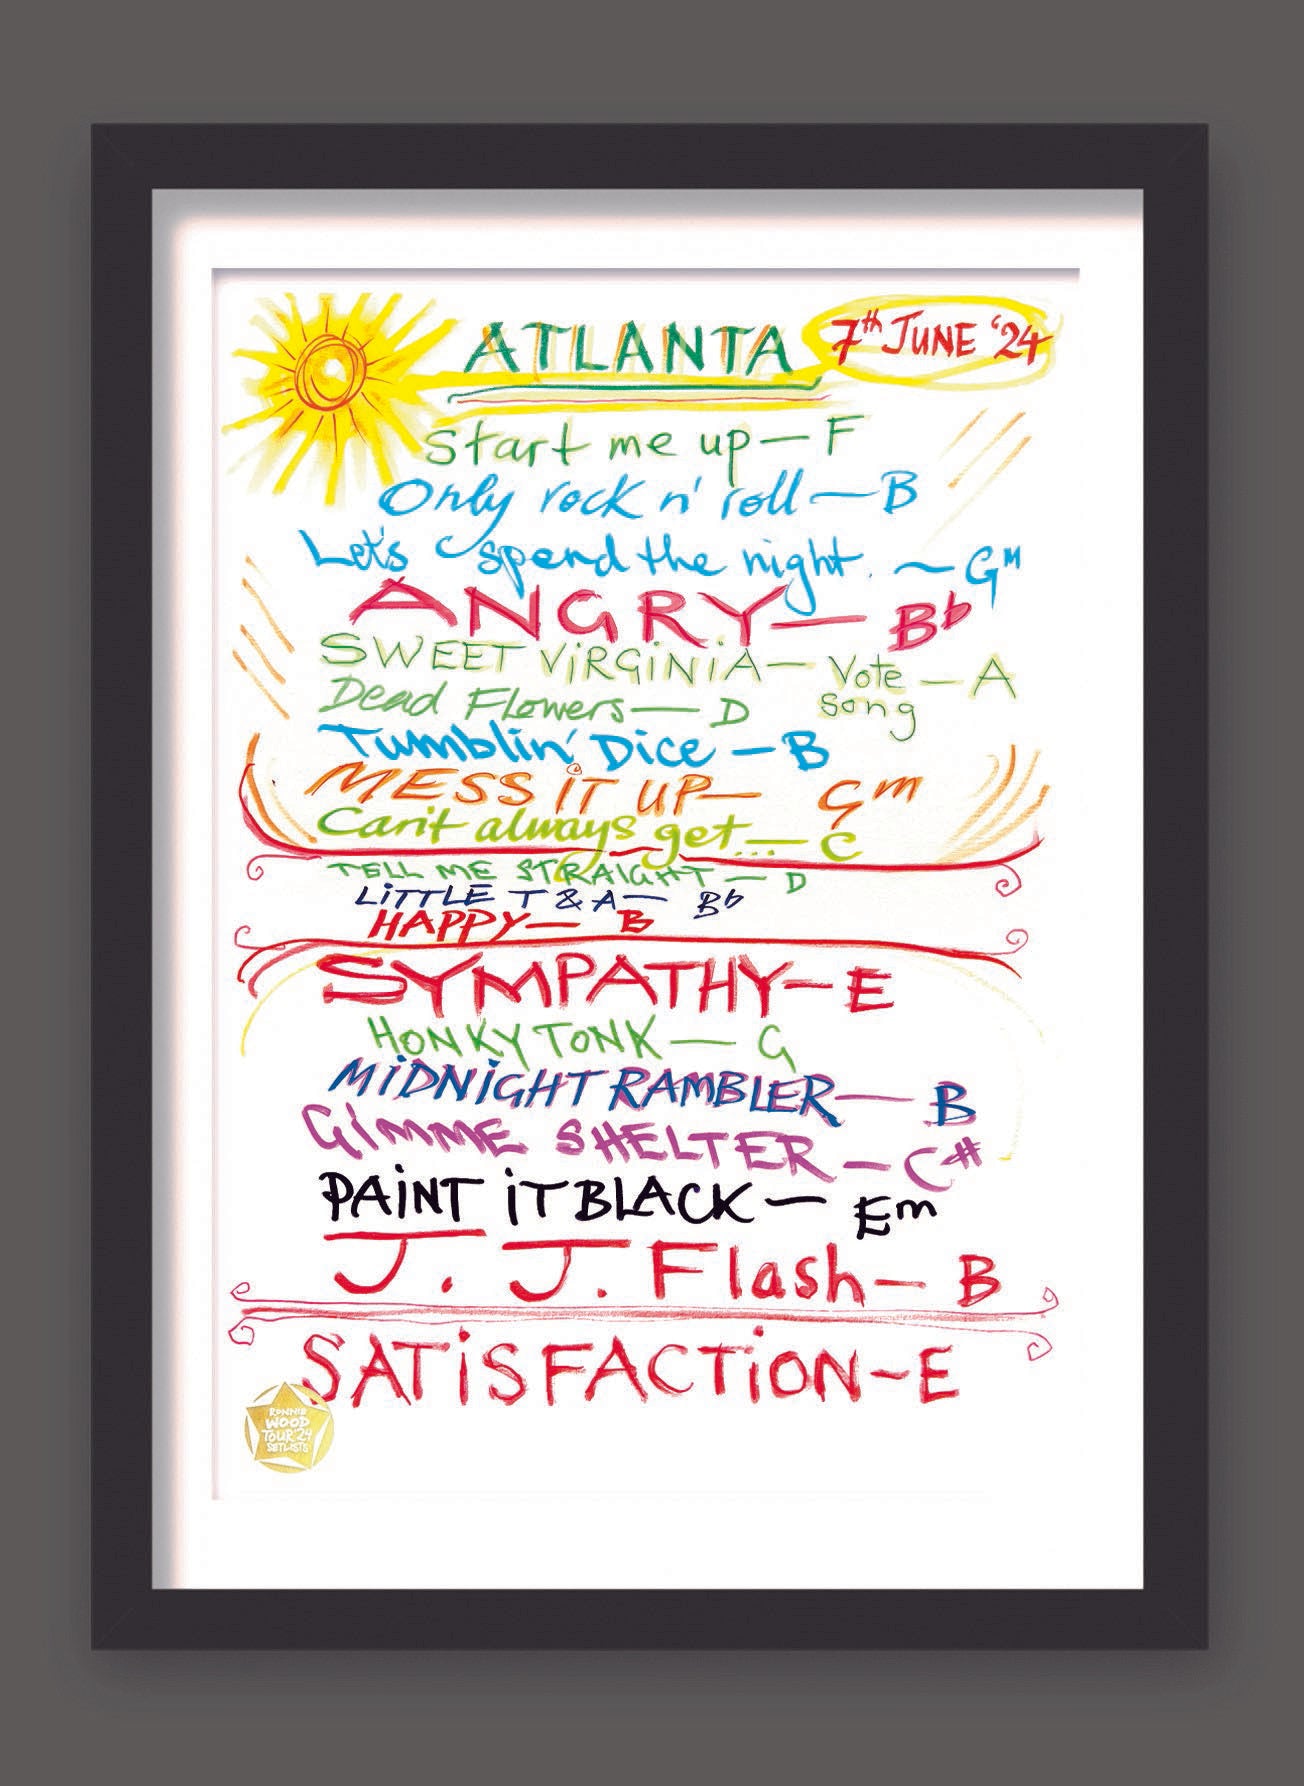 ATLANTA 7th JUNE '24
Start me up — F
Only rock n' roll — B
Let's spend the night. ~ Gm
ANGRY — Bb
SWEET ViRGiNiA — Vote song — A
Dead Flowers — D
Tumblin' Dice — B
MESS iT UP — Gm
Can't always get... — C
TELL ME STRAIGHT — D
LiTTLE T & A — Bb
HAPPY — B
SYMPATHY — E
HONKY TONK — G
MiDNiGHT RAMBLER — B
GIMME SHELTER — C#
PAiNT iT BLACK — Em
J. J. Flash — B
SATiSFACTiON - E
RONNIE
WOOD
TOUR '24
SETLISTS